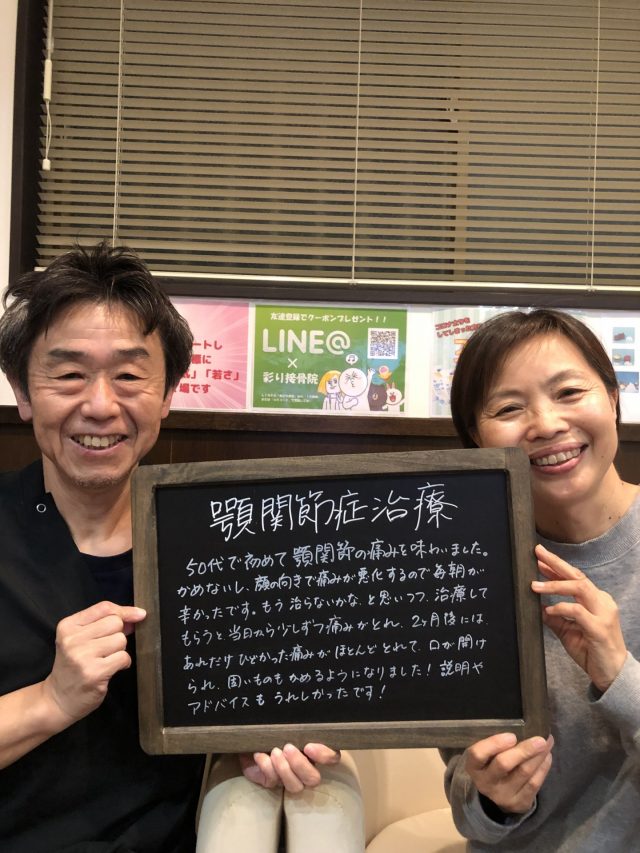 友達登録でクーポンプレゼント！！
LINE@
×
彩り接骨院
「若さ」
場です
顎関節症治療
50代で初めて顎関節の痛みを味わいました。
かめないし、顔の向きで痛みが悪化するので毎朝が
辛かったです。もう治らないかな、と思いつつ、治療して
もらうと当日から少しずつ痛みがとれ、2ヶ月後には、
あれだけひどかった痛みがほとんどとれて、口が開け
られ、固いものもかめるようになりました！説明や
アドバイスもうれしかったです！